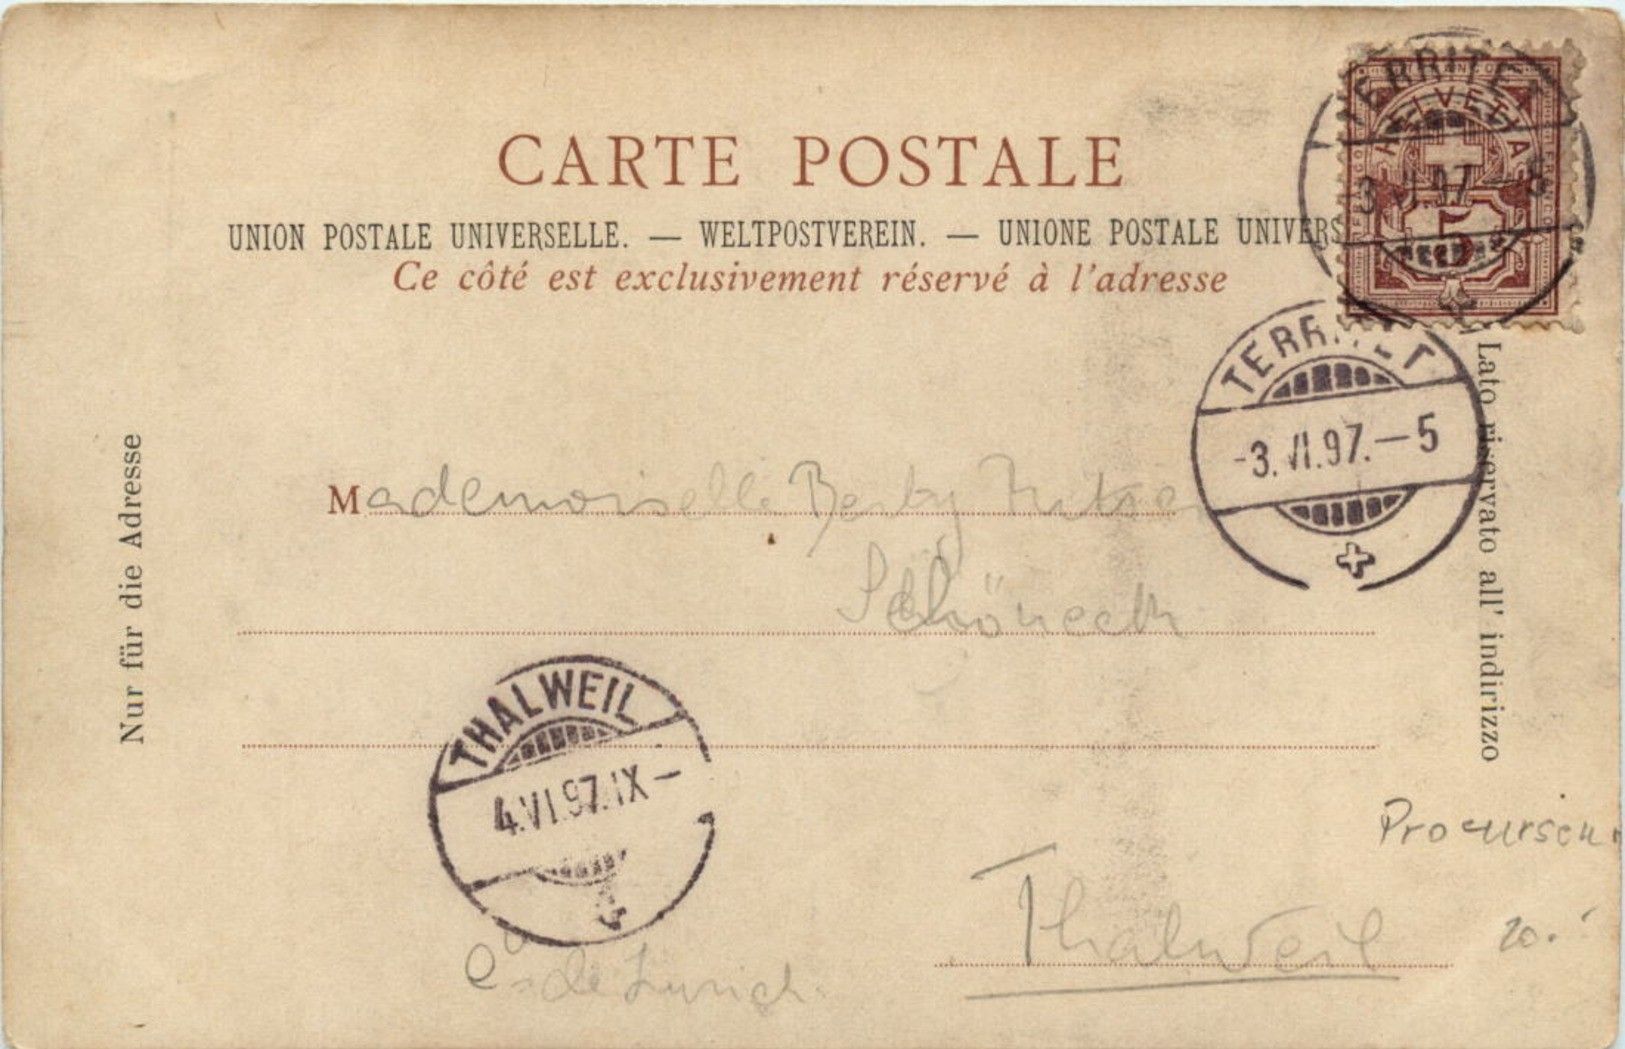 CARTE POSTALE
UNION POSTALE UNIVERSELLE. — WELTPOSTVEREIN. — UNIONE POSTALE UNIVERS
Ce côté est exclusivement réservé à l'adresse
TERRITET
HELVETIA
5
TERRITET
-3.VI.97.—5
Nur für die Adresse
Lato riservato all' indirizzo
Mademoiselle
Schöneck
THALWEIL
4.VI.97.IX—
Thalweil
de Zurich.
20.-